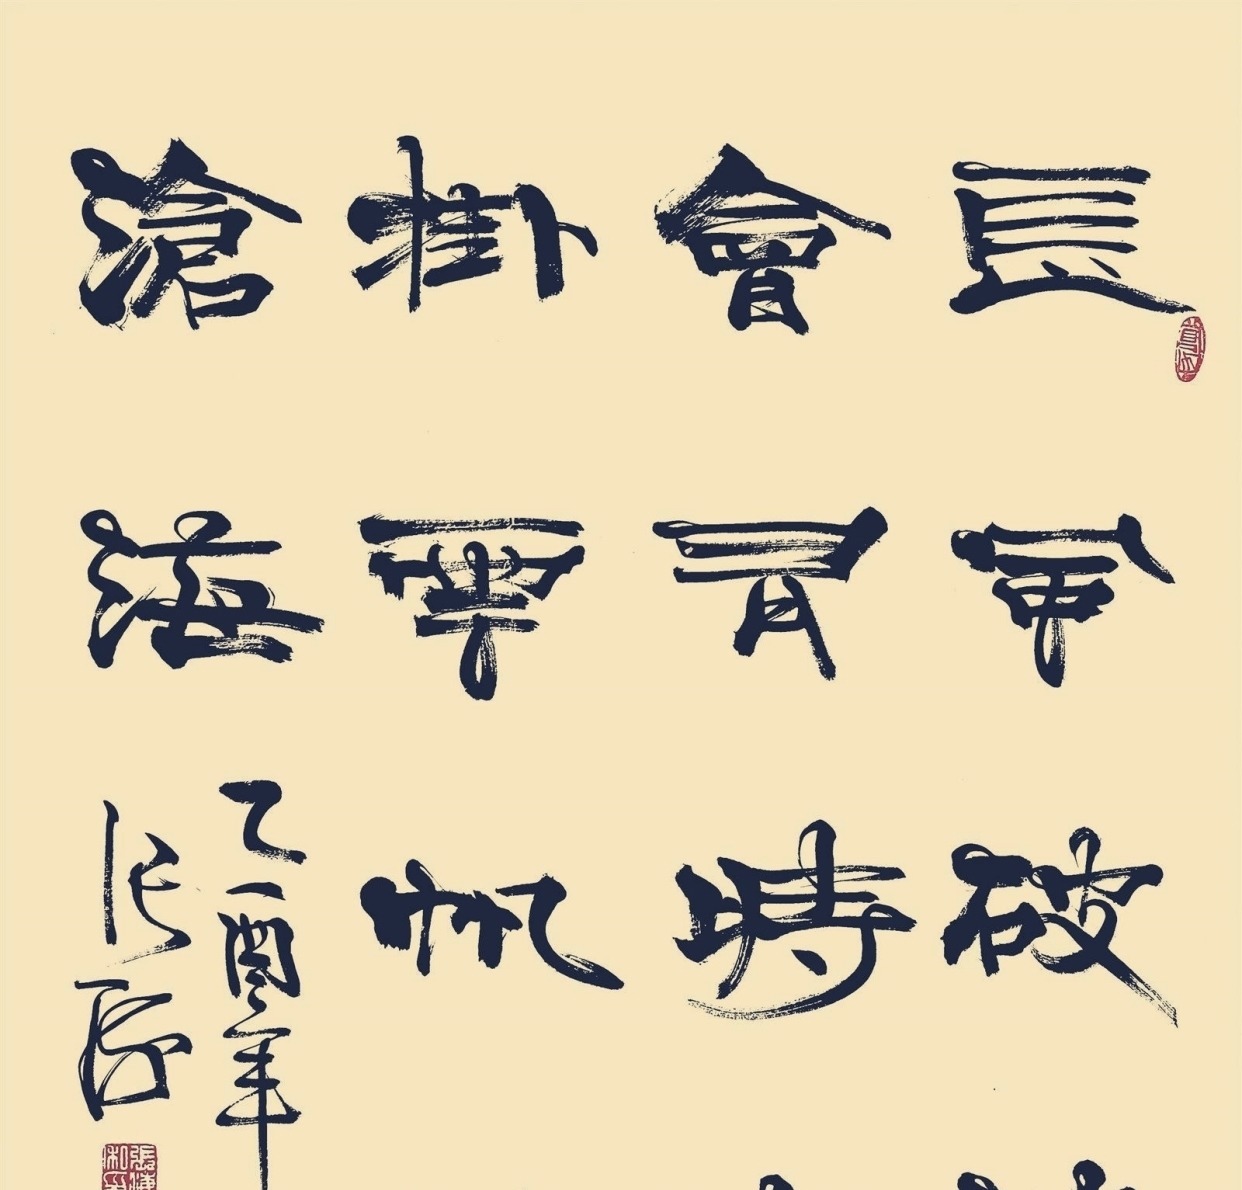 長風破
會有時
掛雲帆
滄海
乙酉年